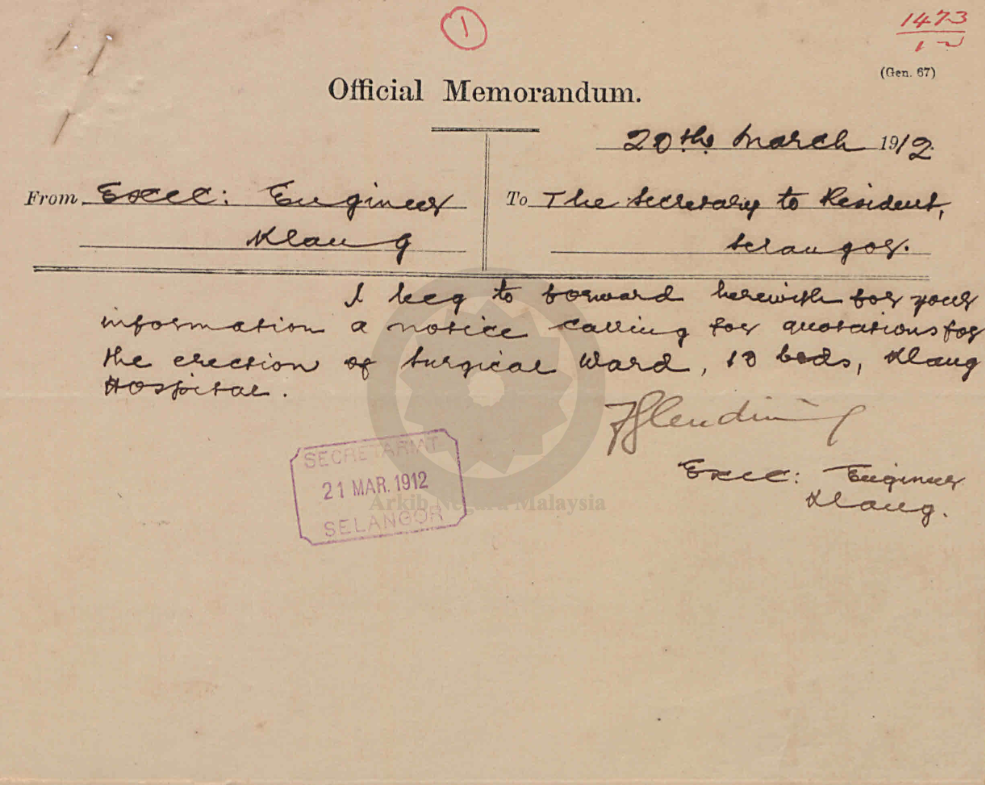 1
1473
12
(Gen. 67)
Official Memorandum.
20th March 1912.
From Exec: Engineer
Klang
To The Secretary to Resident,
Selangor.
I beg to forward herewith for your
information a notice calling for quotations for
the erection of Surgical Ward, 10 beds, Klang
Hospital.
Exec: Engineer
Klang.
SECRETARIAT
21 MAR. 1912
SELANGOR
Arkib Negara Malaysia